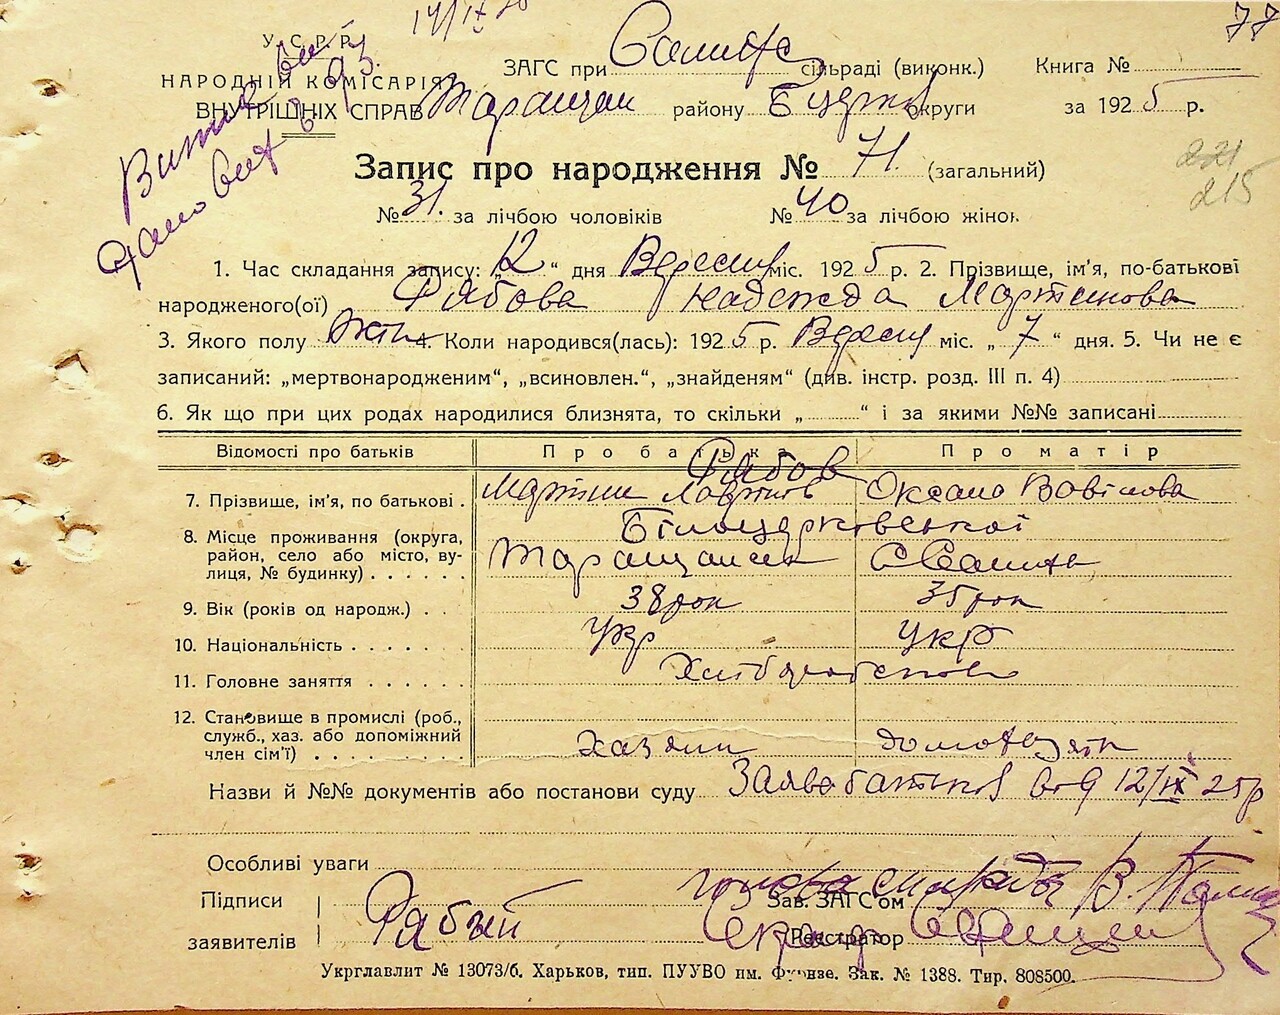 14/IX 25
77
У. С. Р. Р.
НАРОДНІЙ КОМІСАРІЯТ
ВНУТРІШНІХ СПРАВ
ЗАГС при сільраді (виконк.) Книга №
Таращан району Б Церкв округи за 1925 р.
Запис про народження № 71. (загальний)
221
215
№ 31. за лічбою чоловіків № 40 за лічбою жінок
1. Час складання запису: „12“ дня Вересня міс. 1925 р. 2. Прізвище, ім'я, по-батькові
народженого(ої) Рябова Надежда Мартинова
3. Якого полу Жін 4. Коли народився(лась): 1925 р. Вересня міс. „7“ дня. 5. Чи не є
записаний: „мертвонародженим“, „всиновлен.“, „знайденям“ (див. інстр. розд. III п. 4)
6. Як що при цих родах народилися близнята, то скільки „ “ і за якими №№ записані
Відомості про батьків Про батька Про матір
Рябов
7. Прізвище, ім'я, по батькові . Мартин Оксана
Білоцерковської
8. Місце проживання (округа, район, село або місто, вулиця, № будинку) . . . . . .
9. Вік (років од народж.) . . 38 рок 35 рок
10. Національність . . . . . . . Укр Укр
11. Головне заняття . . . . . . Хліборобство
12. Становище в промислі (роб., служб., хаз. або допоміжний член сім'ї) . . . . . . . . Хазяин
Назви й №№ документів або постанови суду Заява батьков від 12/IX 25 р
Особливі уваги
Підписи
заявителів Рябый
Зав. ЗАГС'ом
Реєстратор
Укрглавлит № 13073/б. Харьков, тип. ПУУВО им. Фрунзе. Зак. № 1388. Тир. 808500.